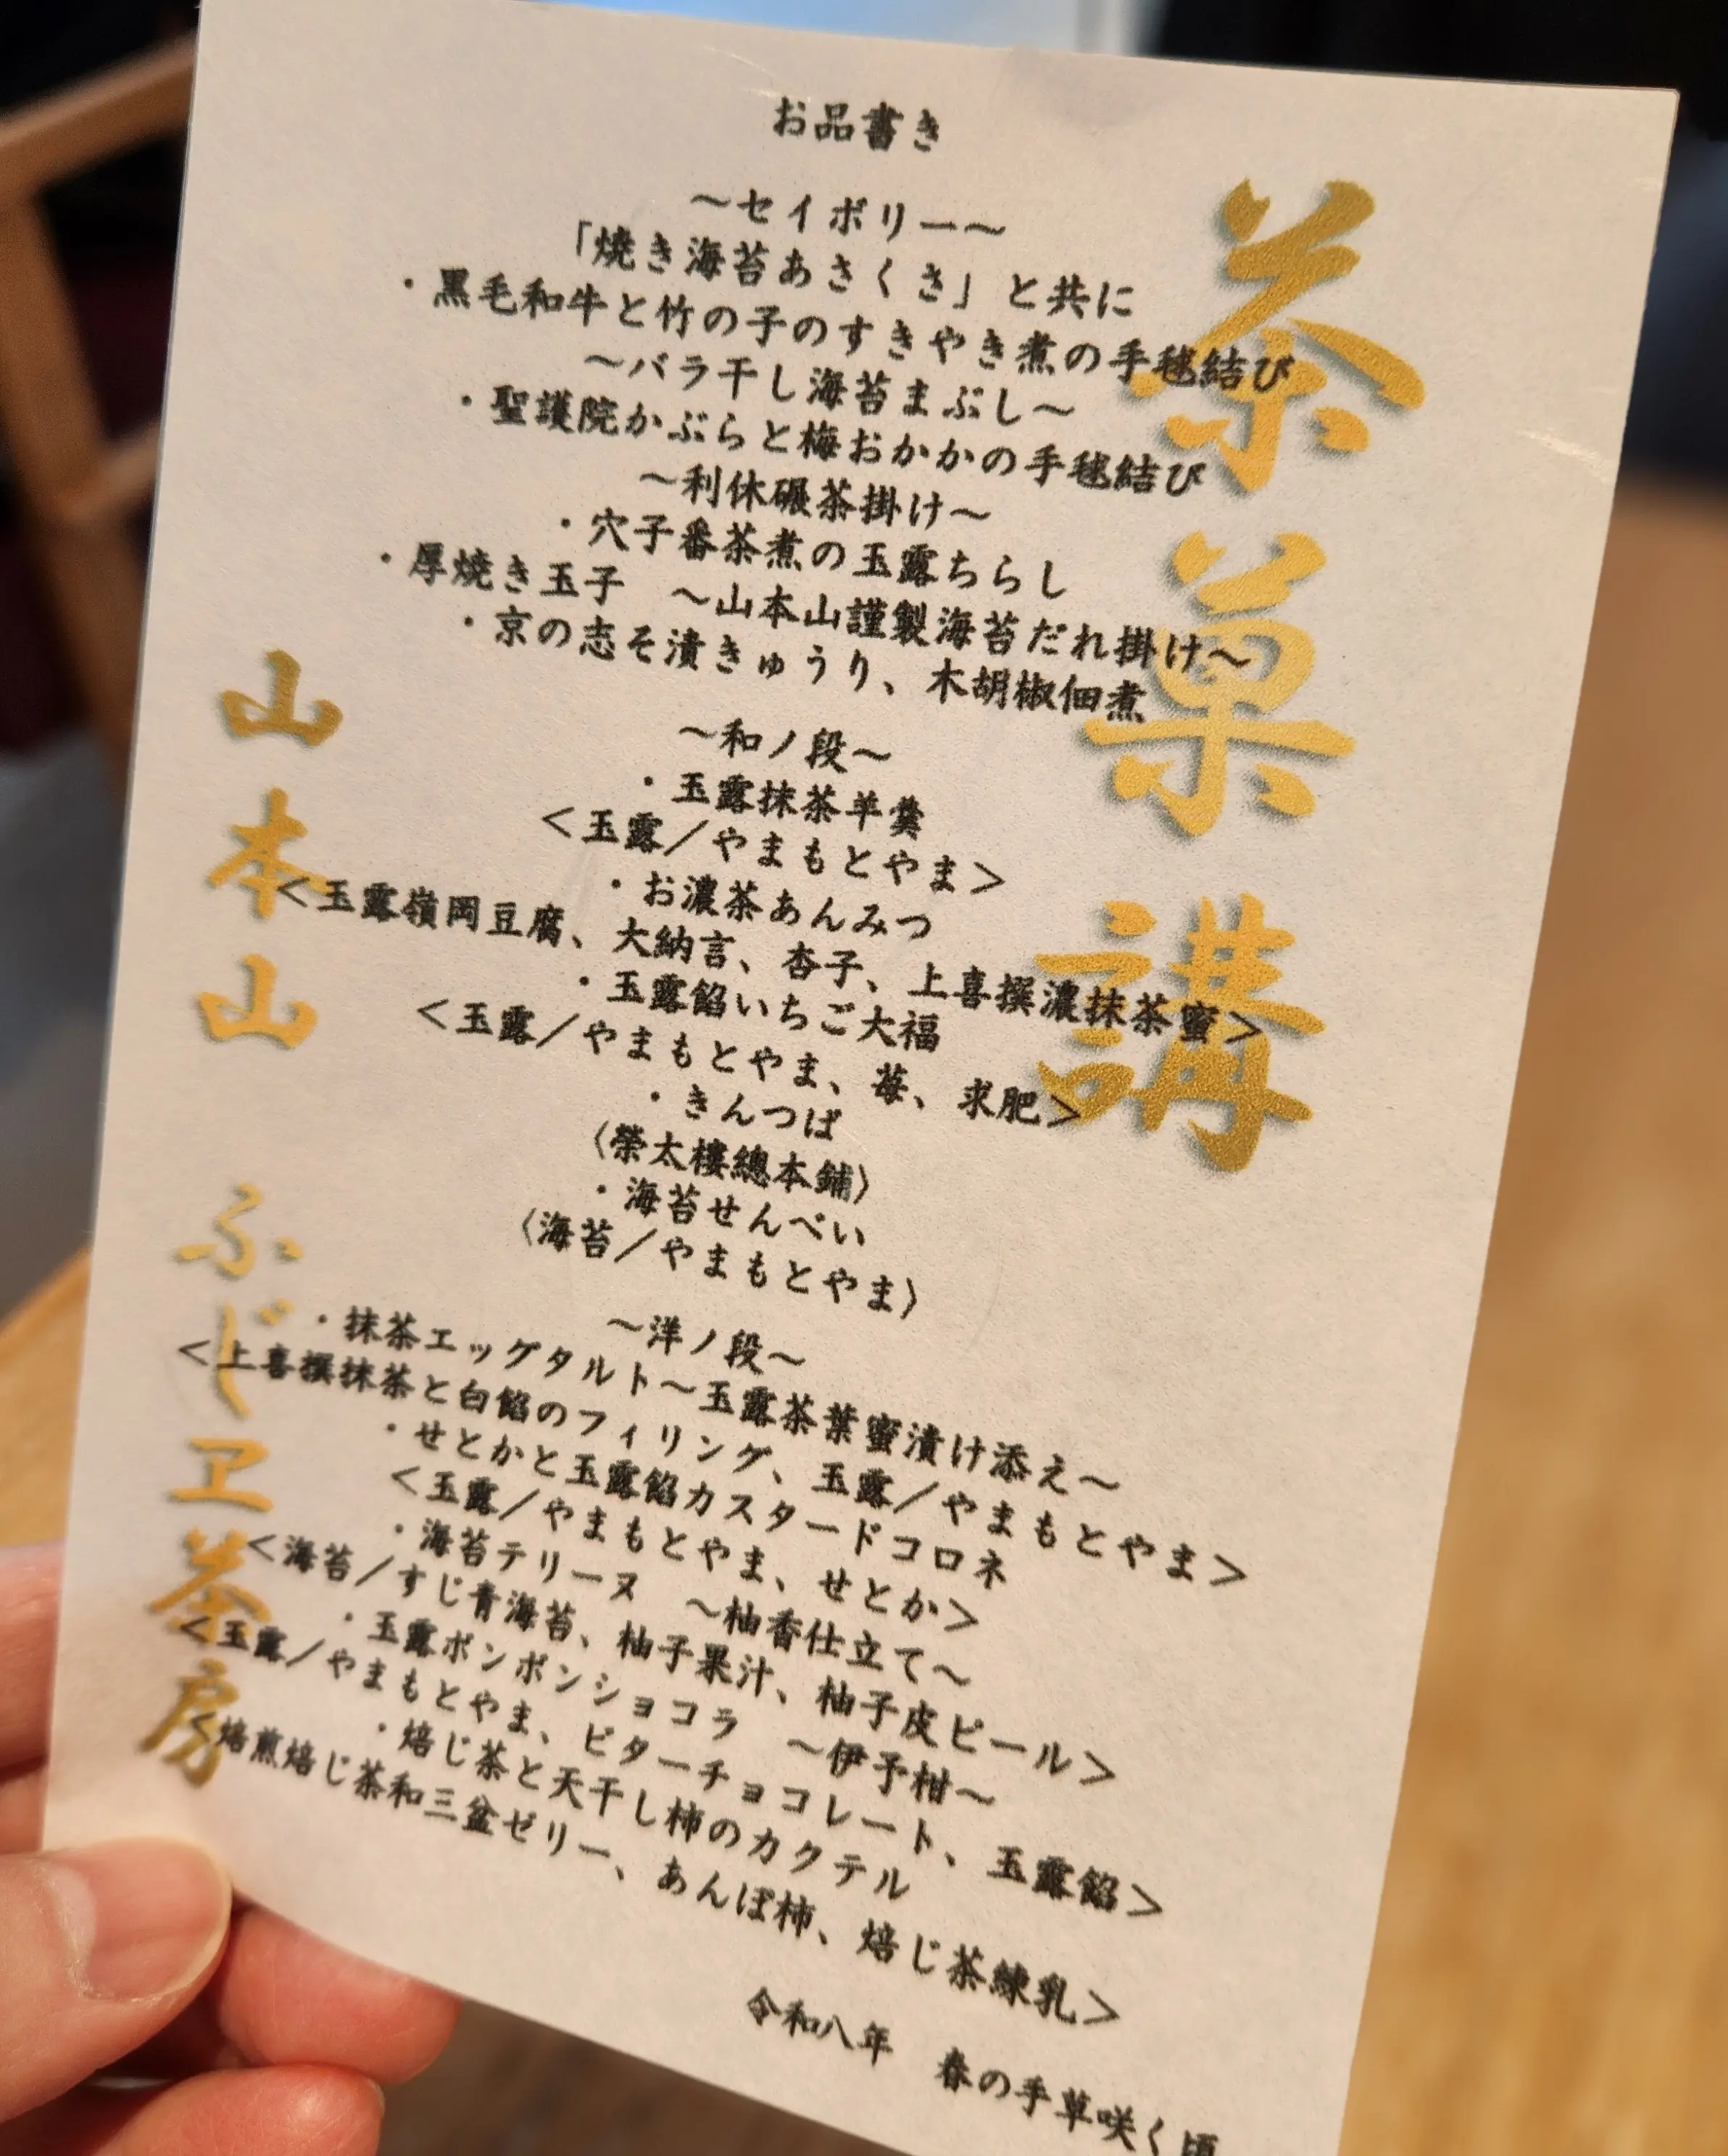 茶菓講
お品書き
〜セイボリー〜
「焼き海苔あさくさ」と共に
・黒毛和牛と竹の子のすきやき煮の手毬結び
〜バラ干し海苔まぶし〜
・聖護院かぶらと梅おかかの手毬結び
〜利休碾茶掛け〜
・穴子番茶煮の玉露ちらし
・厚焼き玉子　〜山本山謹製海苔だれ掛け〜
・京の志そ漬きゅうり、木胡椒佃煮
〜和ノ段〜
・玉露抹茶羊羹
＜玉露／やまもとやま＞
・お濃茶あんみつ
＜玉露嶺岡豆腐、大納言、杏子、上喜撰濃抹茶蜜＞
・玉露餡いちご大福
＜玉露／やまもとやま、苺、求肥＞
・きんつば
〈榮太樓總本鋪〉
・海苔せんべい
〈海苔／やまもとやま〉
〜洋ノ段〜
・抹茶エッグタルト〜玉露茶葉蜜漬け添え〜
＜上喜撰抹茶と白餡のフィリング、玉露／やまもとやま＞
・せとかと玉露餡カスタードコロネ
＜玉露／やまもとやま、せとか＞
・海苔テリーヌ　〜柚香仕立て〜
＜海苔／すじ青海苔、柚子果汁、柚子皮ピール＞
・玉露ボンボンショコラ　〜伊予柑〜
＜玉露／やまもとやま、ビターチョコレート、玉露餡＞
・焙じ茶と天干し柿のカクテル
＜焙煎焙じ茶和三盆ゼリー、あんぽ柿、焙じ茶練乳＞
令和八年　春の手草咲く頃
山本山　ふじヱ茶房